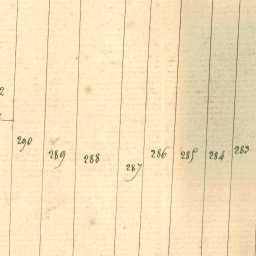 2
290 289 288 287 286 285 284 283